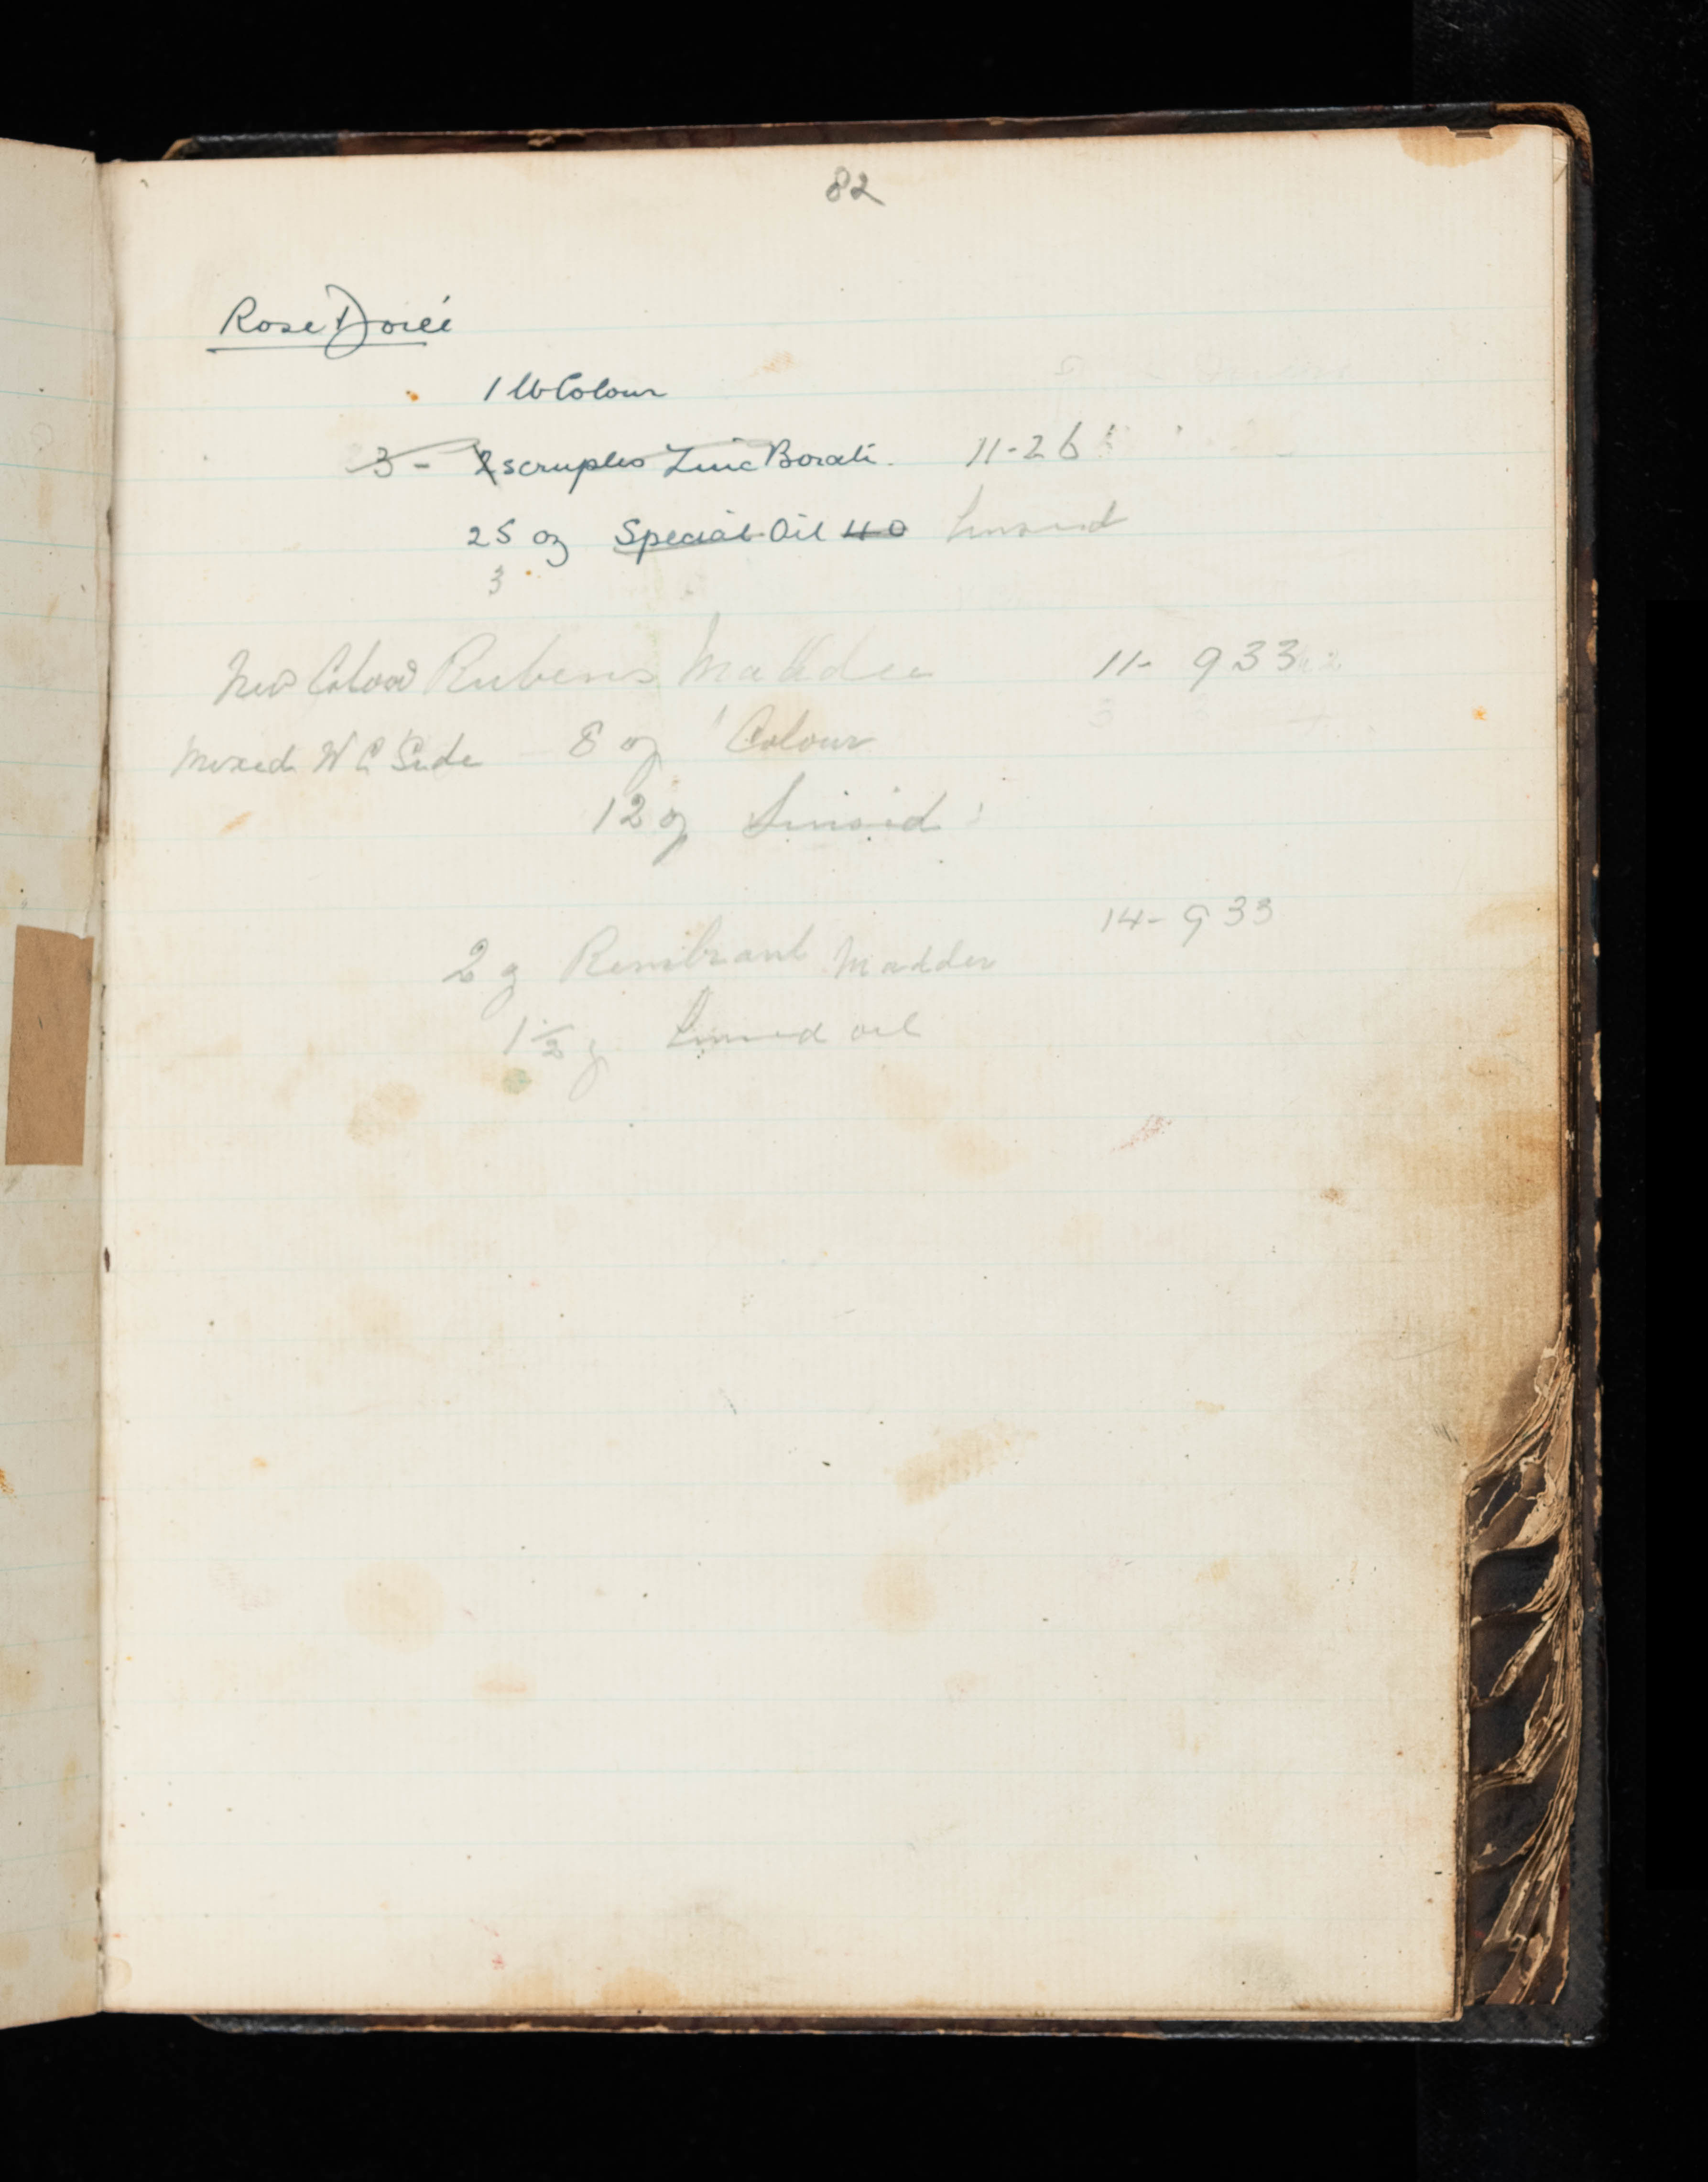 82
Rose Doreé
1 lb Colour
3 - 2 scruples Zinc Borate. 11-26
25 oz Special Oil 40 Linseed
3
New Colour Rubens Madder 11- 933
Mixed W C Side 8 oz Colour
12 oz Linseed
14-933
2 oz Rembrant Madder
1½ oz Linseed oil